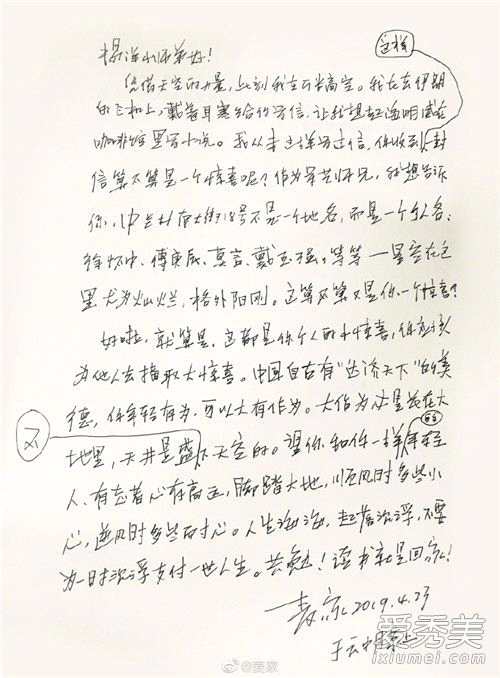 杨洋小师弟好！
凭借天空的力量，此刻我在万米高空。我在去伊朗
的飞机上，戴着耳塞给你写信，让我想起海明威在
咖啡馆里写小说。我从未这样写过信，你收到这样一封
信算不算是一个惊喜呢？作为军艺师兄，我想告诉
你，中关村南大街18号不是一个地名，而是一个个人名：
徐怀中、傅庚辰、莫言、戴玉强，等等——星空在这
里尤为灿烂，格外阳刚。这算不算又是你一个惊喜？
好啦，就算是，这都是你个人的小惊喜，你应该
为他人去摘取大惊喜。中国自古有“达济天下”的美
德，你年轻有为，可以大有作为。大作为必是长在大
地里，天井是盛不下天空的。望你和你一样年轻
人，有志者心存高远，脚踏大地，顺风时多些小
心，逆风时多些耐心。人生海海，起落沉浮，不要
为一时沉浮支付一世人生。共勉！读书就是回家！
麦家 2019.4.23
于云端上
@麦家
爱秀美
ixiumei.com